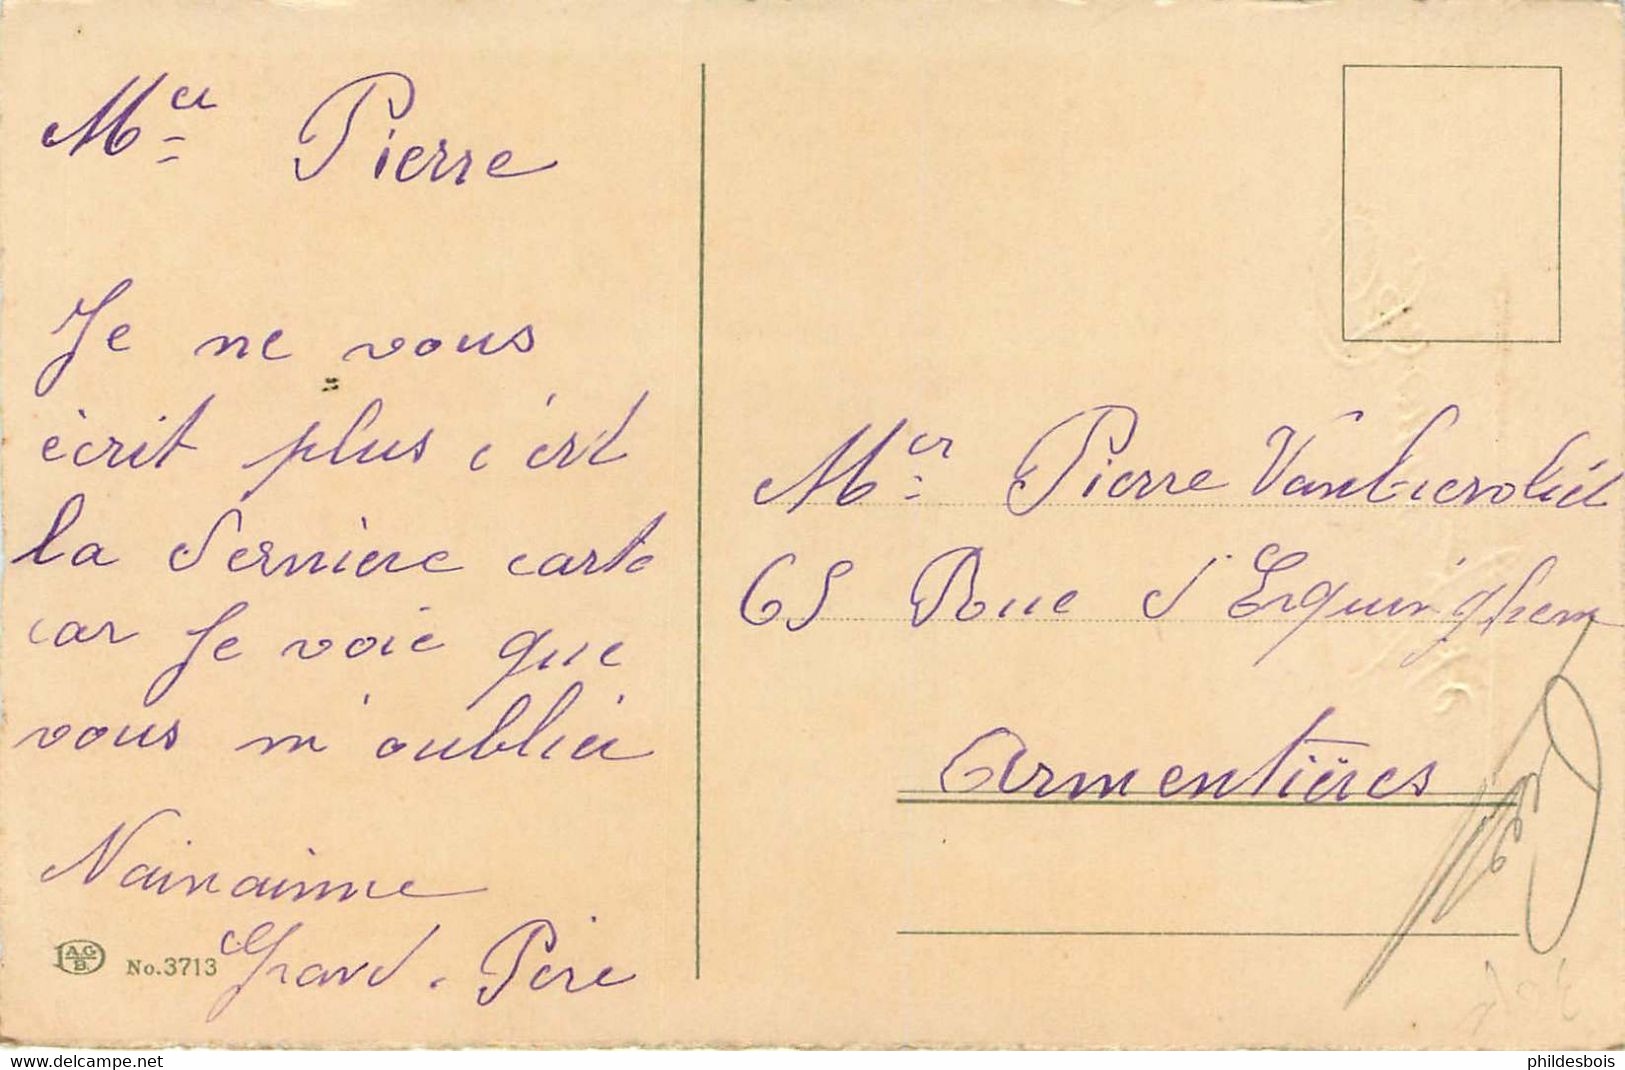 Mer Pierre
Je ne vous
écrit plus c'est
la dernière carte
car Je voie que
vous m'oublier
Grand-Père
AGB
No. 3713
Mer Pierre
65 Rue d'Erquinghem
Armentières
delcampe.net
phildesbois